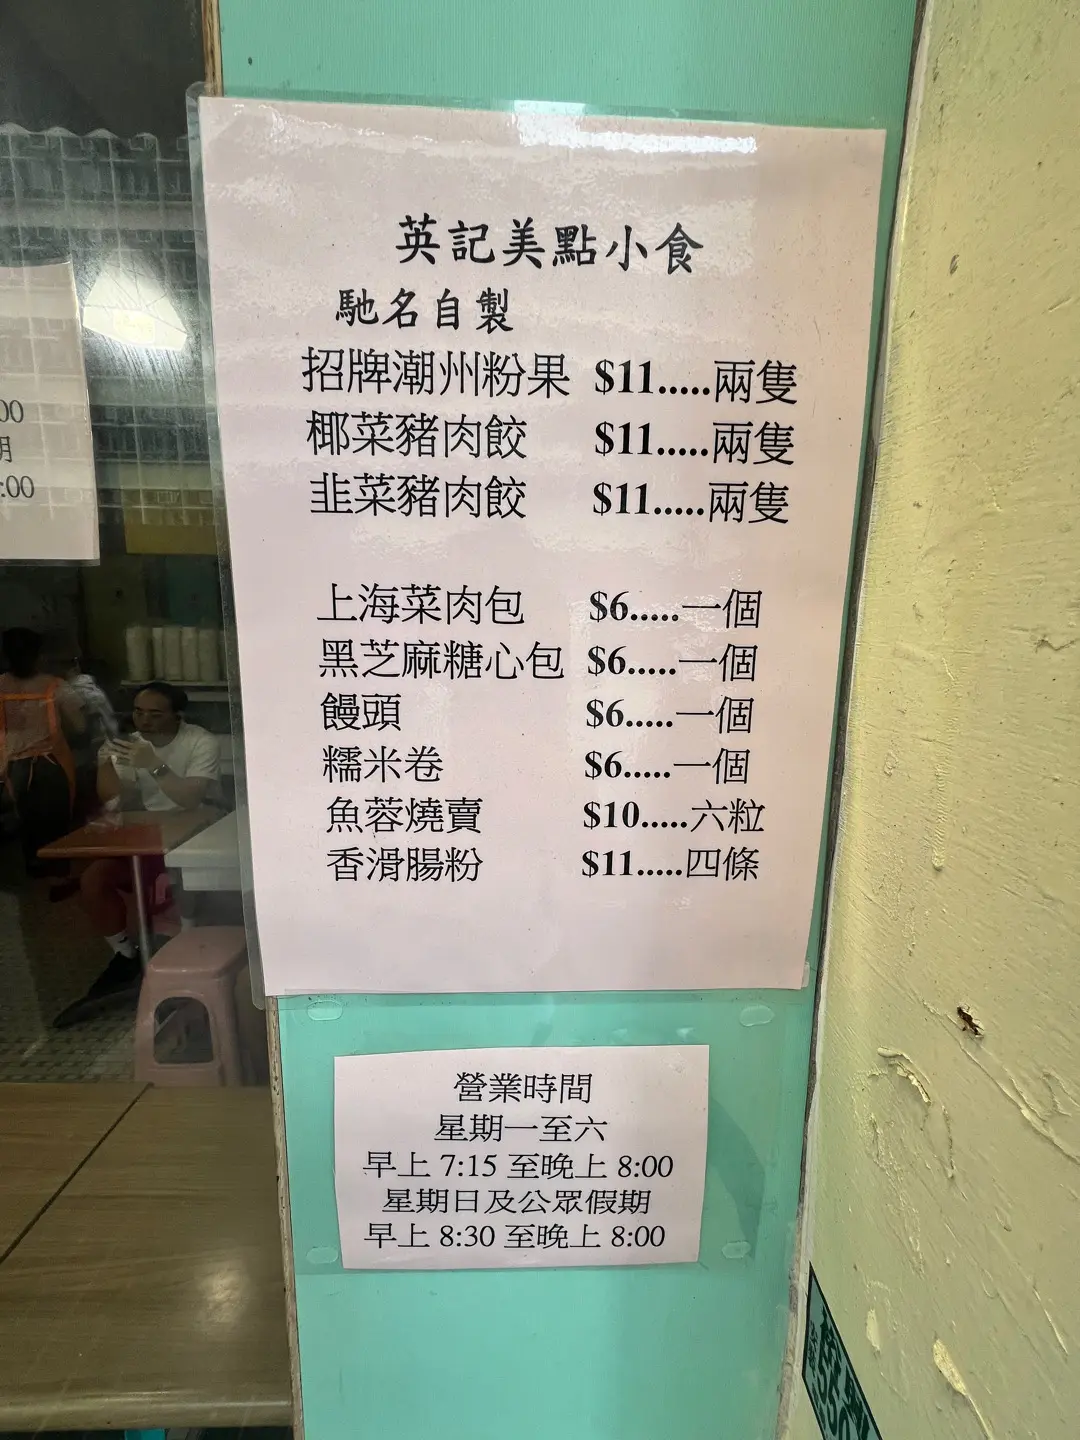 英記美點小食
馳名自製
招牌潮州粉果 $11.....兩隻
椰菜豬肉餃 $11.....兩隻
韭菜豬肉餃 $11.....兩隻
上海菜肉包 $6.....一個
黑芝麻糖心包 $6.....一個
饅頭 $6.....一個
糯米卷 $6.....一個
魚蓉燒賣 $10.....六粒
香滑腸粉 $11.....四條
營業時間
星期一至六
早上 7:15 至晚上 8:00
星期日及公眾假期
早上 8:30 至晚上 8:00
:00